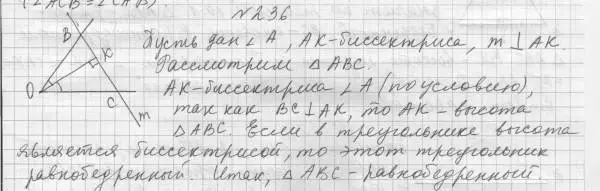 (∠ACB = ∠CAB)
N236
B
K
O
C
m
Пусть дан ∠A, AK-биссектриса, m ⊥ AK.
Рассмотрим △ ABC.
AK-биссектриса ∠A (по условию),
так как BC⊥AK, то AK - высота
△ABC. Если в треугольнике высота
является биссектрисой, то этот треугольник
равнобедренный. Итак, △ ABC - равнобедренный.